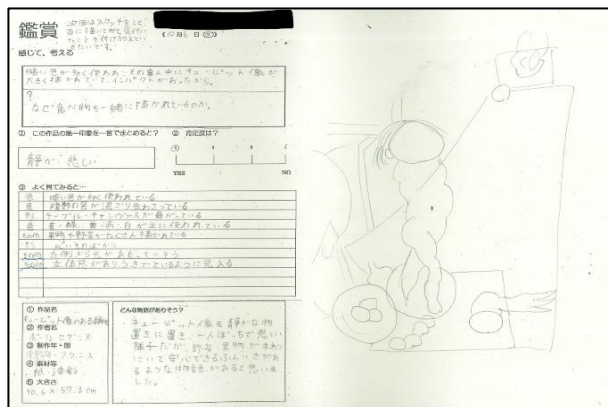 鑑賞
次回はスケッチをして
感じて、考える
暗い色が多く使われ、その真ん中にキューピット像が
大きく描かれていて、インパクトがあったから。
?
なぜ食べ物も一緒に描かれているのか。
① この作品の第一印象を一言でまとめると?
② 肯定度は?
静か・悲しい
YES NO
③ よく見てみると…
色 暗い色が多く使われている
色 複数の色が混ざり合わさっている
形 テーブル・キャンヴァスが曲がっている
色 青・緑・黄・赤・白が主に使われている
果物や野菜がたくさん描かれている
左側から光があたっていそう
立体感があり、うきでているように見える
① 作品名
キューピット像のある静物
② 作者名
ポール・セザンヌ
③ 制作年・国
フランス
④ 素材等
⑤ 大きさ
70.6 × 57.3 cm
どんな物語がありそう?
キューピット人形を静かな物
置きに置き、一人ぼっちで悲しい
様子だが、野菜、果物がまわり
にいて安心できるふんいきがあ
るような物語があると思いま
した。